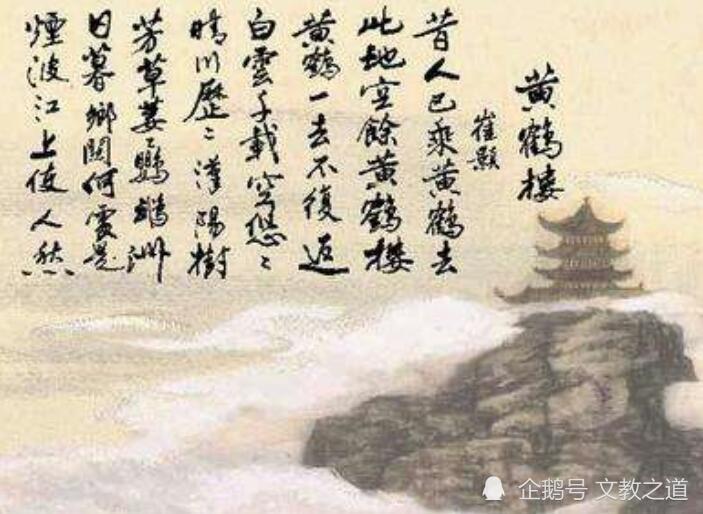 黄鶴樓
崔顥
昔人已乘黄鶴去
此地空餘黄鶴樓
黄鶴一去不復返
白雲千載空悠〻
晴川歷〻漢陽樹
芳草萋〻鸚鵡洲
日暮鄉関何處是
煙波江上使人愁
企鹅号 文教之道